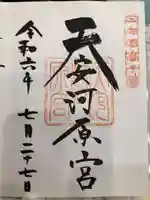 天安河原宮
令和六年 七月二十七日